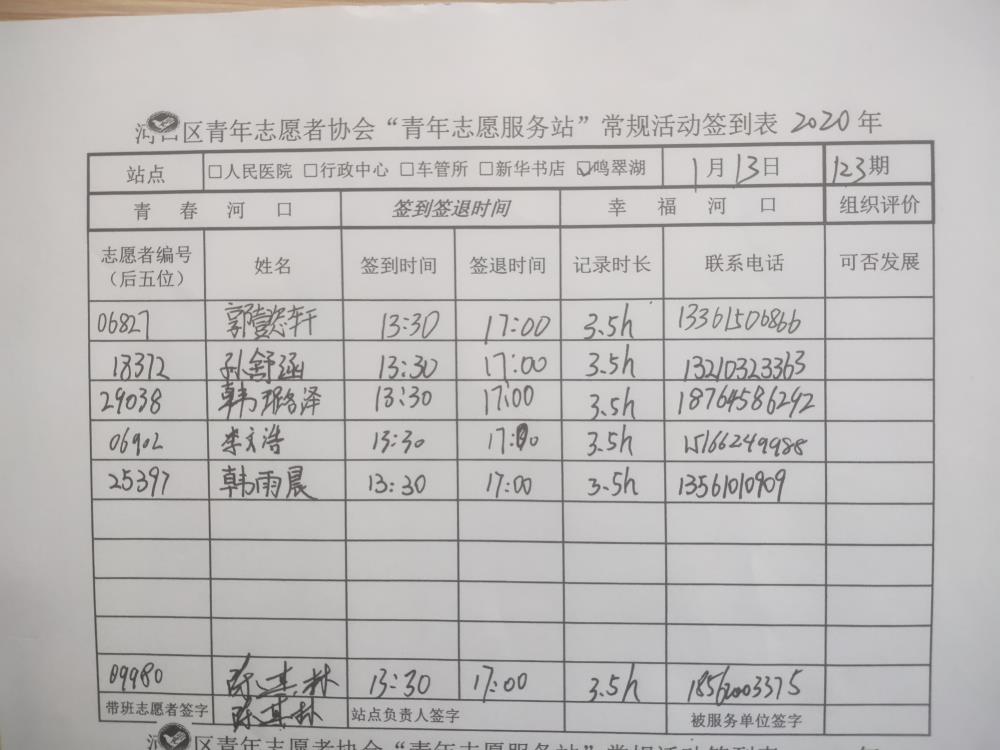 河口区青年志愿者协会“青年志愿服务站”常规活动签到表 2020年
站点 □人民医院 □行政中心 □车管所 □新华书店 ☑鸣翠湖 1月13日 123期
青春河口 签到签退时间 幸福河口 组织评价
志愿者编号（后五位） 姓名 签到时间 签退时间 记录时长 联系电话 可否发展
06827 郭懿轩 13:30 17:00 3.5h 13361506866
18372 孙舒涵 13:30 17:00 3.5h 13210323363
29038 韩璐泽 13:30 17:00 3.5h 18764586292
06902 李文浩 13:30 17:00 3.5h 15166249988
25397 韩雨晨 13:30 17:00 3.5h 13561010909
09980 陈其林 13:30 17:00 3.5h 18562003375
带班志愿者签字 陈其林 站点负责人签字 被服务单位签字
河口区青年志愿者协会“青年志愿服务站”常规活动签到表 年